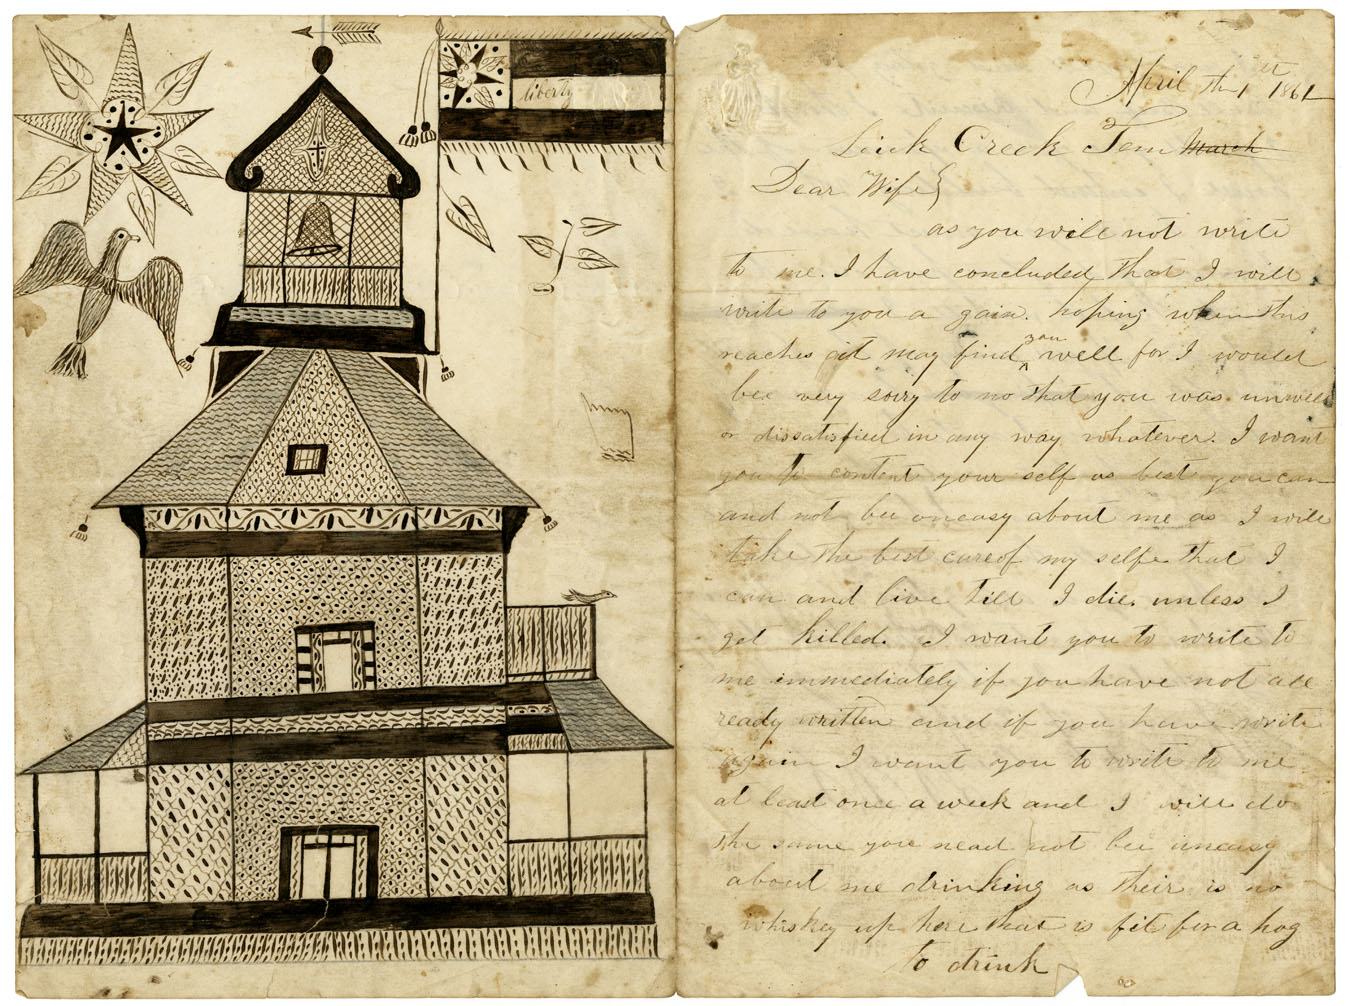 liberty
April th 1st 1862
Lick Creek Tenn March
Dear Wife}
as you will not write
to me. I have concluded that I will
write to you a gain. hoping when this
reaches it may find you well for I would
bee very sorry to no that you was unwell
or dissatisfied in any way whatever. I want
you to content your self as best you can
and not bee uneasy about me as I will
take the best care of my selfe that I
can and live till I die. unless I
get killed. I want you to write to
me immediately if you have not all
ready written and if you have write
again I want you to write to me
at least once a week and I will do
the same you nead not bee uneasy
about me drinking as their is no
whiskey up here that is fit for a hog
to drink